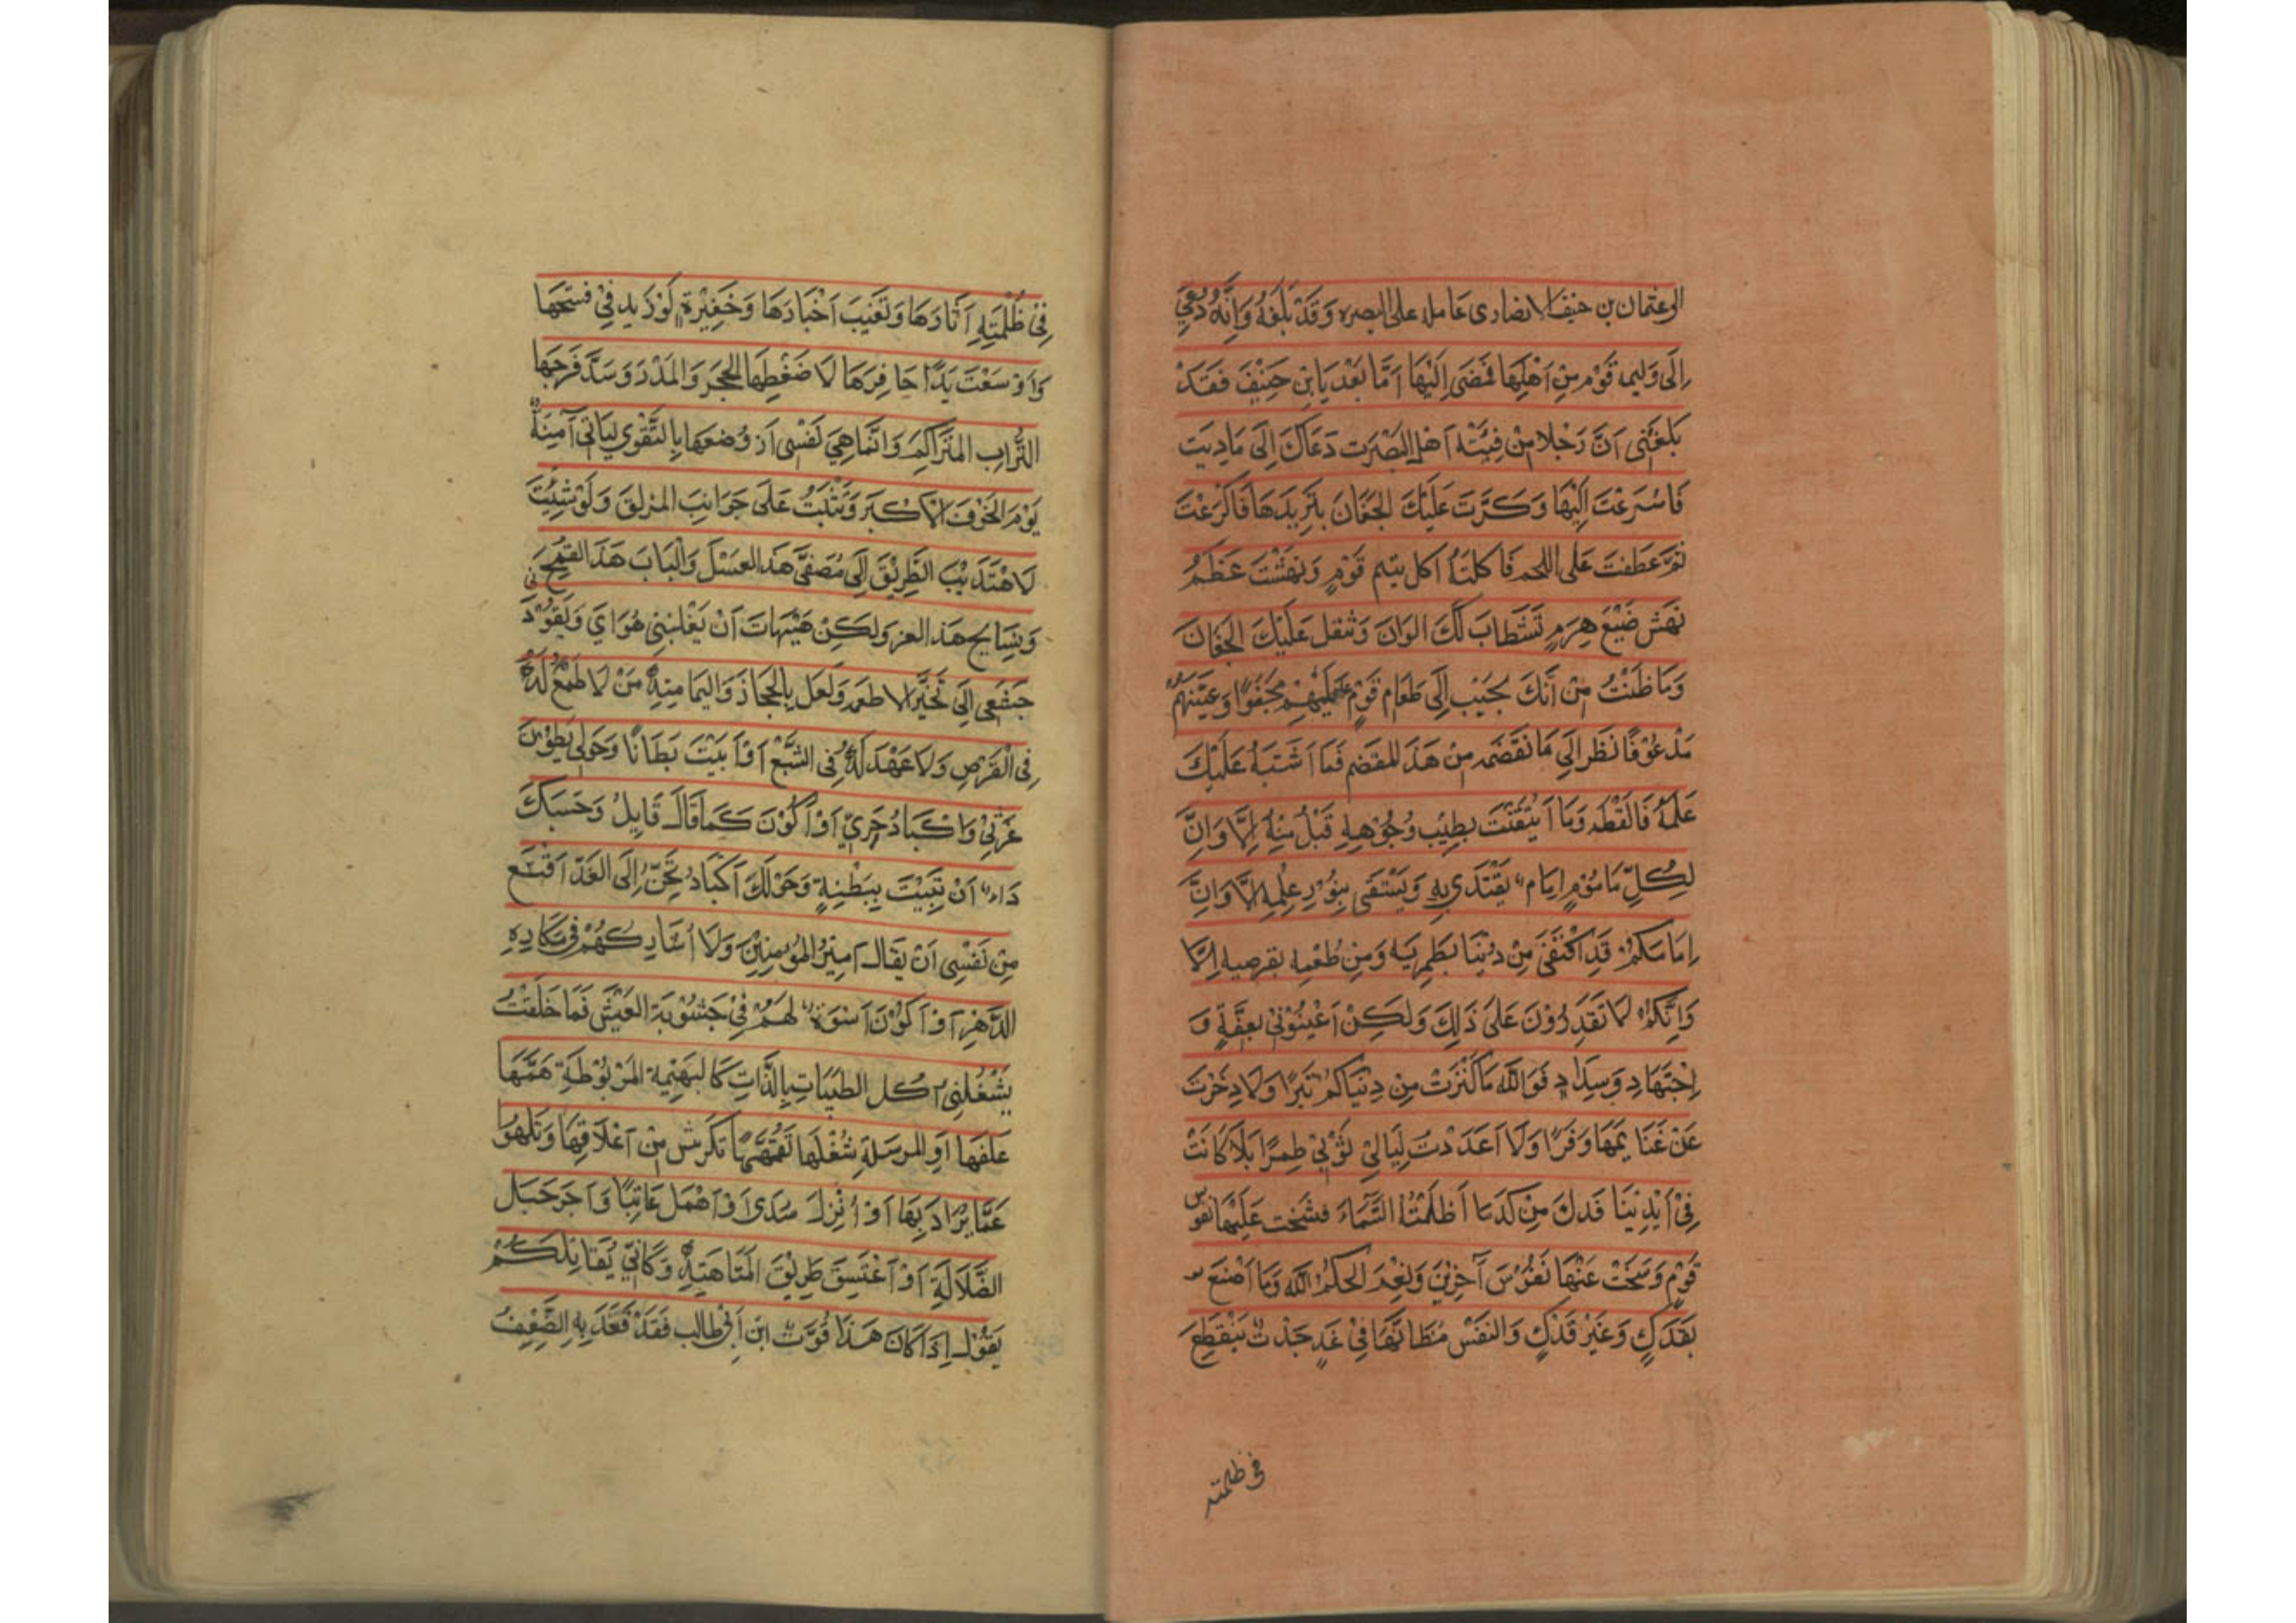 الی عثمان بن حنیف الانصاری عامله علی البصره وَقَدْ بَلَغَهُ وَاِنَّهُ دُعِيَ
اِلَی وَلیمه قَوْم مِنِ اَهْلِهَا فمَضَی اِلَیْهَا اَمَّا بَعْدَ یَا بْنِ حَنِیْفَ فَقَدْ
بَلَغَنِی اَنَّ رَجُلا مِنْ فِیَتْه اَهْلِ البَصْرَت دَعَاكَ اِلَی مَادِبَت
فَاسْرَعْتَ اِلَیْهَا وَكَرَّتَ عَلَیْكَ الجَفَان بثَرِیدَهَا فَاكْرَعْتَ
ثمَّ عَطَفتَ عَلی اللحم فَاكلتَهُ اكل یتیم قَوْمٍ وَنهَشْتَ عَظمُ
نَهَش ضَبْعَ هِرَمٍ تَسْتَطابَ لَكَ الوَانَ وَتنقل عَلَیْكَ الجَفَانَ
وَمَا ظَنَنْتُ مِنْ اَنَّكَ تُجیْب اِلَی طَعَام قَوْمٍ عَیْلِهِمْ مَجْفُوًا وَغَنِیُّهُمْ
مَدْعُوْ فَانْظَر اِلَی مَا نَقَضَمه مِنْ هَذَ للمقضم فَمَا اَشَتَبَهُ عَلَیْكَ
عَلمَهُ فَالَقْظه وَمَا اَیْتقَنْتَ بِطِیْب وُجُوْهِهِ قَبْلُ مِنْهُ اِلَّا وَاِنَّ
لِكُلِّ مَامُوْمٍ اِمَامٌ یَقْتَدَی بِهِ وَیَسْتَضَی بِنُوْرِ عِلْمِهِ اِلَّا وَاِنَّ
اِمَامَكمُ قَدِ اكْتَفَی مِنْ دنْیَا بطَمِرَیه وَمِنِ طُعْمِهِ بِقرصیه اِلَّا
وَاِنَّكمُ لَا تَقَدِرُوْنَ عَلَی ذَلِكَ وَلَكِنْ اَعْیْنُوْنِی بعِفَّةٍ وَ
اِجْتَهَادٍ وَسِدَادٍ فَوَ اللَّه مَا كَنَزْتْ مِنِ دنْیَاكُم تَبَرًا وَلَا دِخَرْتَ
عَنْ غَنَایمَهَا وَفَرًا وَلَا اَعَدَدْتُ لِبَالِیْ ثَوْبِیْ طِمرًا بَلَا كَانَتْ
فِیْ اَیْدِیْنَا فَدك مِنْ كلَمَا اَظَلَّتْهُ السَّمَاءَ فَشَحّت عَلَیْهَا نفوس
قَومٍ وَسَخَتْ عَنْهَا نَفُوْسَ آخِرِیْنَ وَلنِعْمَ الحَكَمُ اللَّه وَمَا اَصْنَعَ
بِفَدَكٍ وَغَیْرَ فَدَكٍ وَالنفَسْ مُظَانّهَا فِیْ غَدٍ جَدْثٌ یَنْقَطِعَ
فی ظلمته
فِیْ ظُلْمَتِهِ اَثَارَهَا وَتَغَیْبَ اَخْبَارَهَا وَحَفِیْرَةٌ لَوْزَید فِیْ فسحتَهَا
وَاوْسَعْتَ یَدًا حَافِرَهَا لَا ضْغَطهَا الحِجَرَ وَالمَدَرَ وَسَدَّ فَرَجَهَا
التُّرَابِ المتَراكِمَ وَاِنَّمَا هِيَ نَفْسِی اَرُوضَهَا بِالتَّقْوِی لیَاتی آمِنَهٌ
یَوْمَ الخَوْف الاَكْبَر وَتَثْبَتُ عَلَی جَوَانِبَ المَزلقَ وَلَوْ شِئْتَ
لَاهْتَدَیْتَ الطَّرِیْقَ اِلَی مُصَفَّی هَذَا العَسَلَ وَلْبَابَ هَذَ القمْحِ
وَنِسَایج هَذَ القز وَلَكِنْ هَیْهَاتَ اَنْ یَغْلبَنِی هُوَايَ وَیَقُوْدَنی
جَشَعِی اِلَی تَخَیّر الاطعمه وَلَعَل بِالحِجَازَ وَالیمَامةِ مَنْ لَا طَمْعَ لَهُ
فِی الْقَرْصِ وَلَا عَهْدَ لَهُ فِی الشَّبْعْ اَوْ اَبیْتَ بَطَانًا وَحَوْلِی بَطَوْنَ
غَرْثَیْ وَاكْبَادُ حَرِيّ اَوْ اَكُوْنَ كَمَا قَالَ قَایِلُ وَحَسَبَكَ
دَاءً اَنْ تَبِیْتَ بِبَطْنِةٍ وَحَوْلَكَ اَكْبَادٌ تَحُنّ اِلَی الغَدّ اَقْنَع
مِنْ نَفْسِی اَنْ یقَال اَمِیْرُ المُؤمِنِیْنَ وَلَا اُشَارِكُهُمْ فِی مَكَارِهِ
الدَّهْرِ اَوْ اَكُوْنَ اَسْوَةٌ لهَمْ فِیْ جَشُوْبَةَ العَیْشَ فَمَا خُلَقتُ
یَشْغُلنِی اَكل الطَیّبَاتِ بِالذَّاتِ كَالبَهِیْمَةِ المَرْبُوْطَةِ هَمّهَا
عَلفهَا اَوِ المُرسَلَةِ شُغْلَهَا تَقَمّهَا تَكْرَش مِنْ اَعْلَافِهَا وَتَلهُوْا
عَمَّا یُرَادَ بِهَا اَوْ اُتْرَكَ سُدَیً اَوْ اَهْمَل عَابِثًا وَاَجَرَ حَبَل
الضَّلَالَةِ اَوْ اَعْتَسِفَ طَرِیْقَ المَتَاهَتِهِ وَكَانِّی بُقَائلكُمْ
یَقُوْلُ اِذَا كَانَ هَذَا قُوَّتْ ابْنِ اَبِی طَالِب فَقَدْ قَعَدَ بِهِ الضَّعِفُ